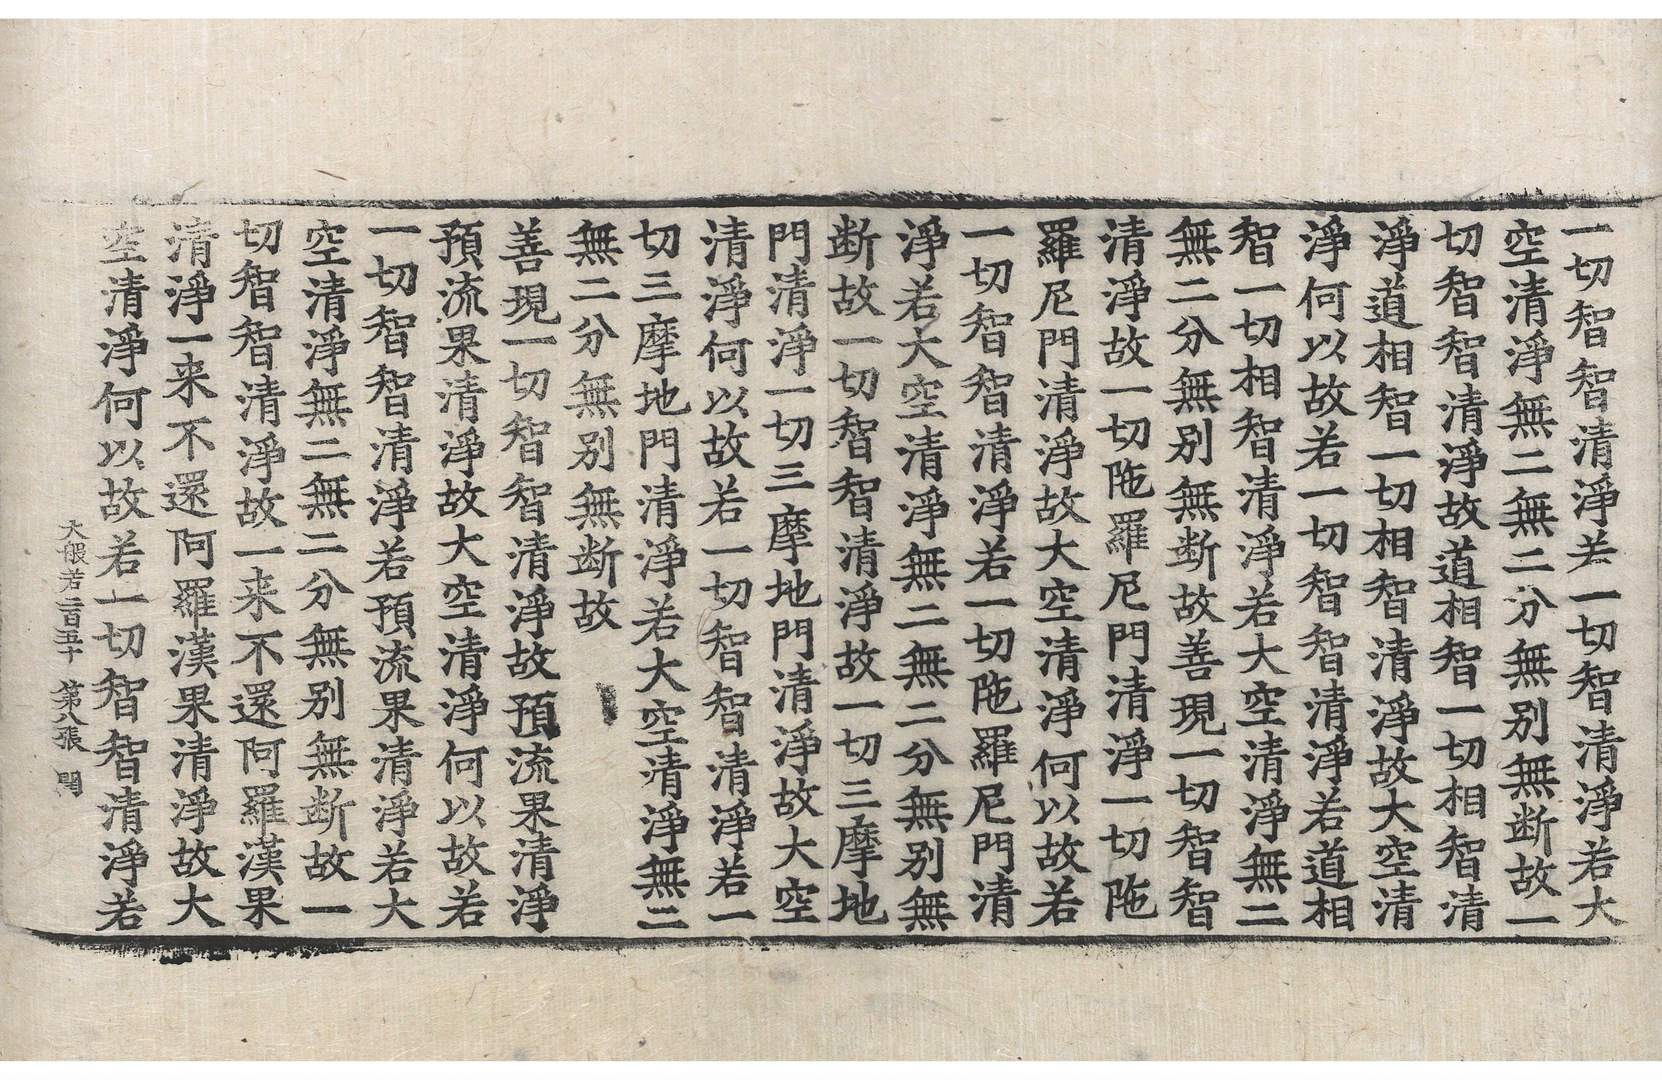 一切智智清淨若一切智清淨若大
空清淨無二無二分無别無断故一
切智智清淨故道相智一切相智清
淨道相智一切相智清淨故大空清
淨何以故若一切智智清淨若道相
智一切相智清淨若大空清淨無二
無二分無别無断故善現一切智智
清淨故一切陁羅尼門清淨一切陁
羅尼門清淨故大空清淨何以故若
一切智智清淨若一切陁羅尼門清
淨若大空清淨無二無二分無别無
断故一切智智清淨故一切三摩地
門清淨一切三摩地門清淨故大空
清淨何以故若一切智智清淨若一
切三摩地門清淨若大空清淨無二
無二分無别無断故
善現一切智智清淨故預流果清淨
預流果清淨故大空清淨何以故若
一切智智清淨若預流果清淨若大
空清淨無二無二分無别無断故一
切智智清淨故一来不還阿羅漢果
清淨一来不還阿羅漢果清淨故大
空清淨何以故若一切智智清淨若
大般若二百五十 第八張